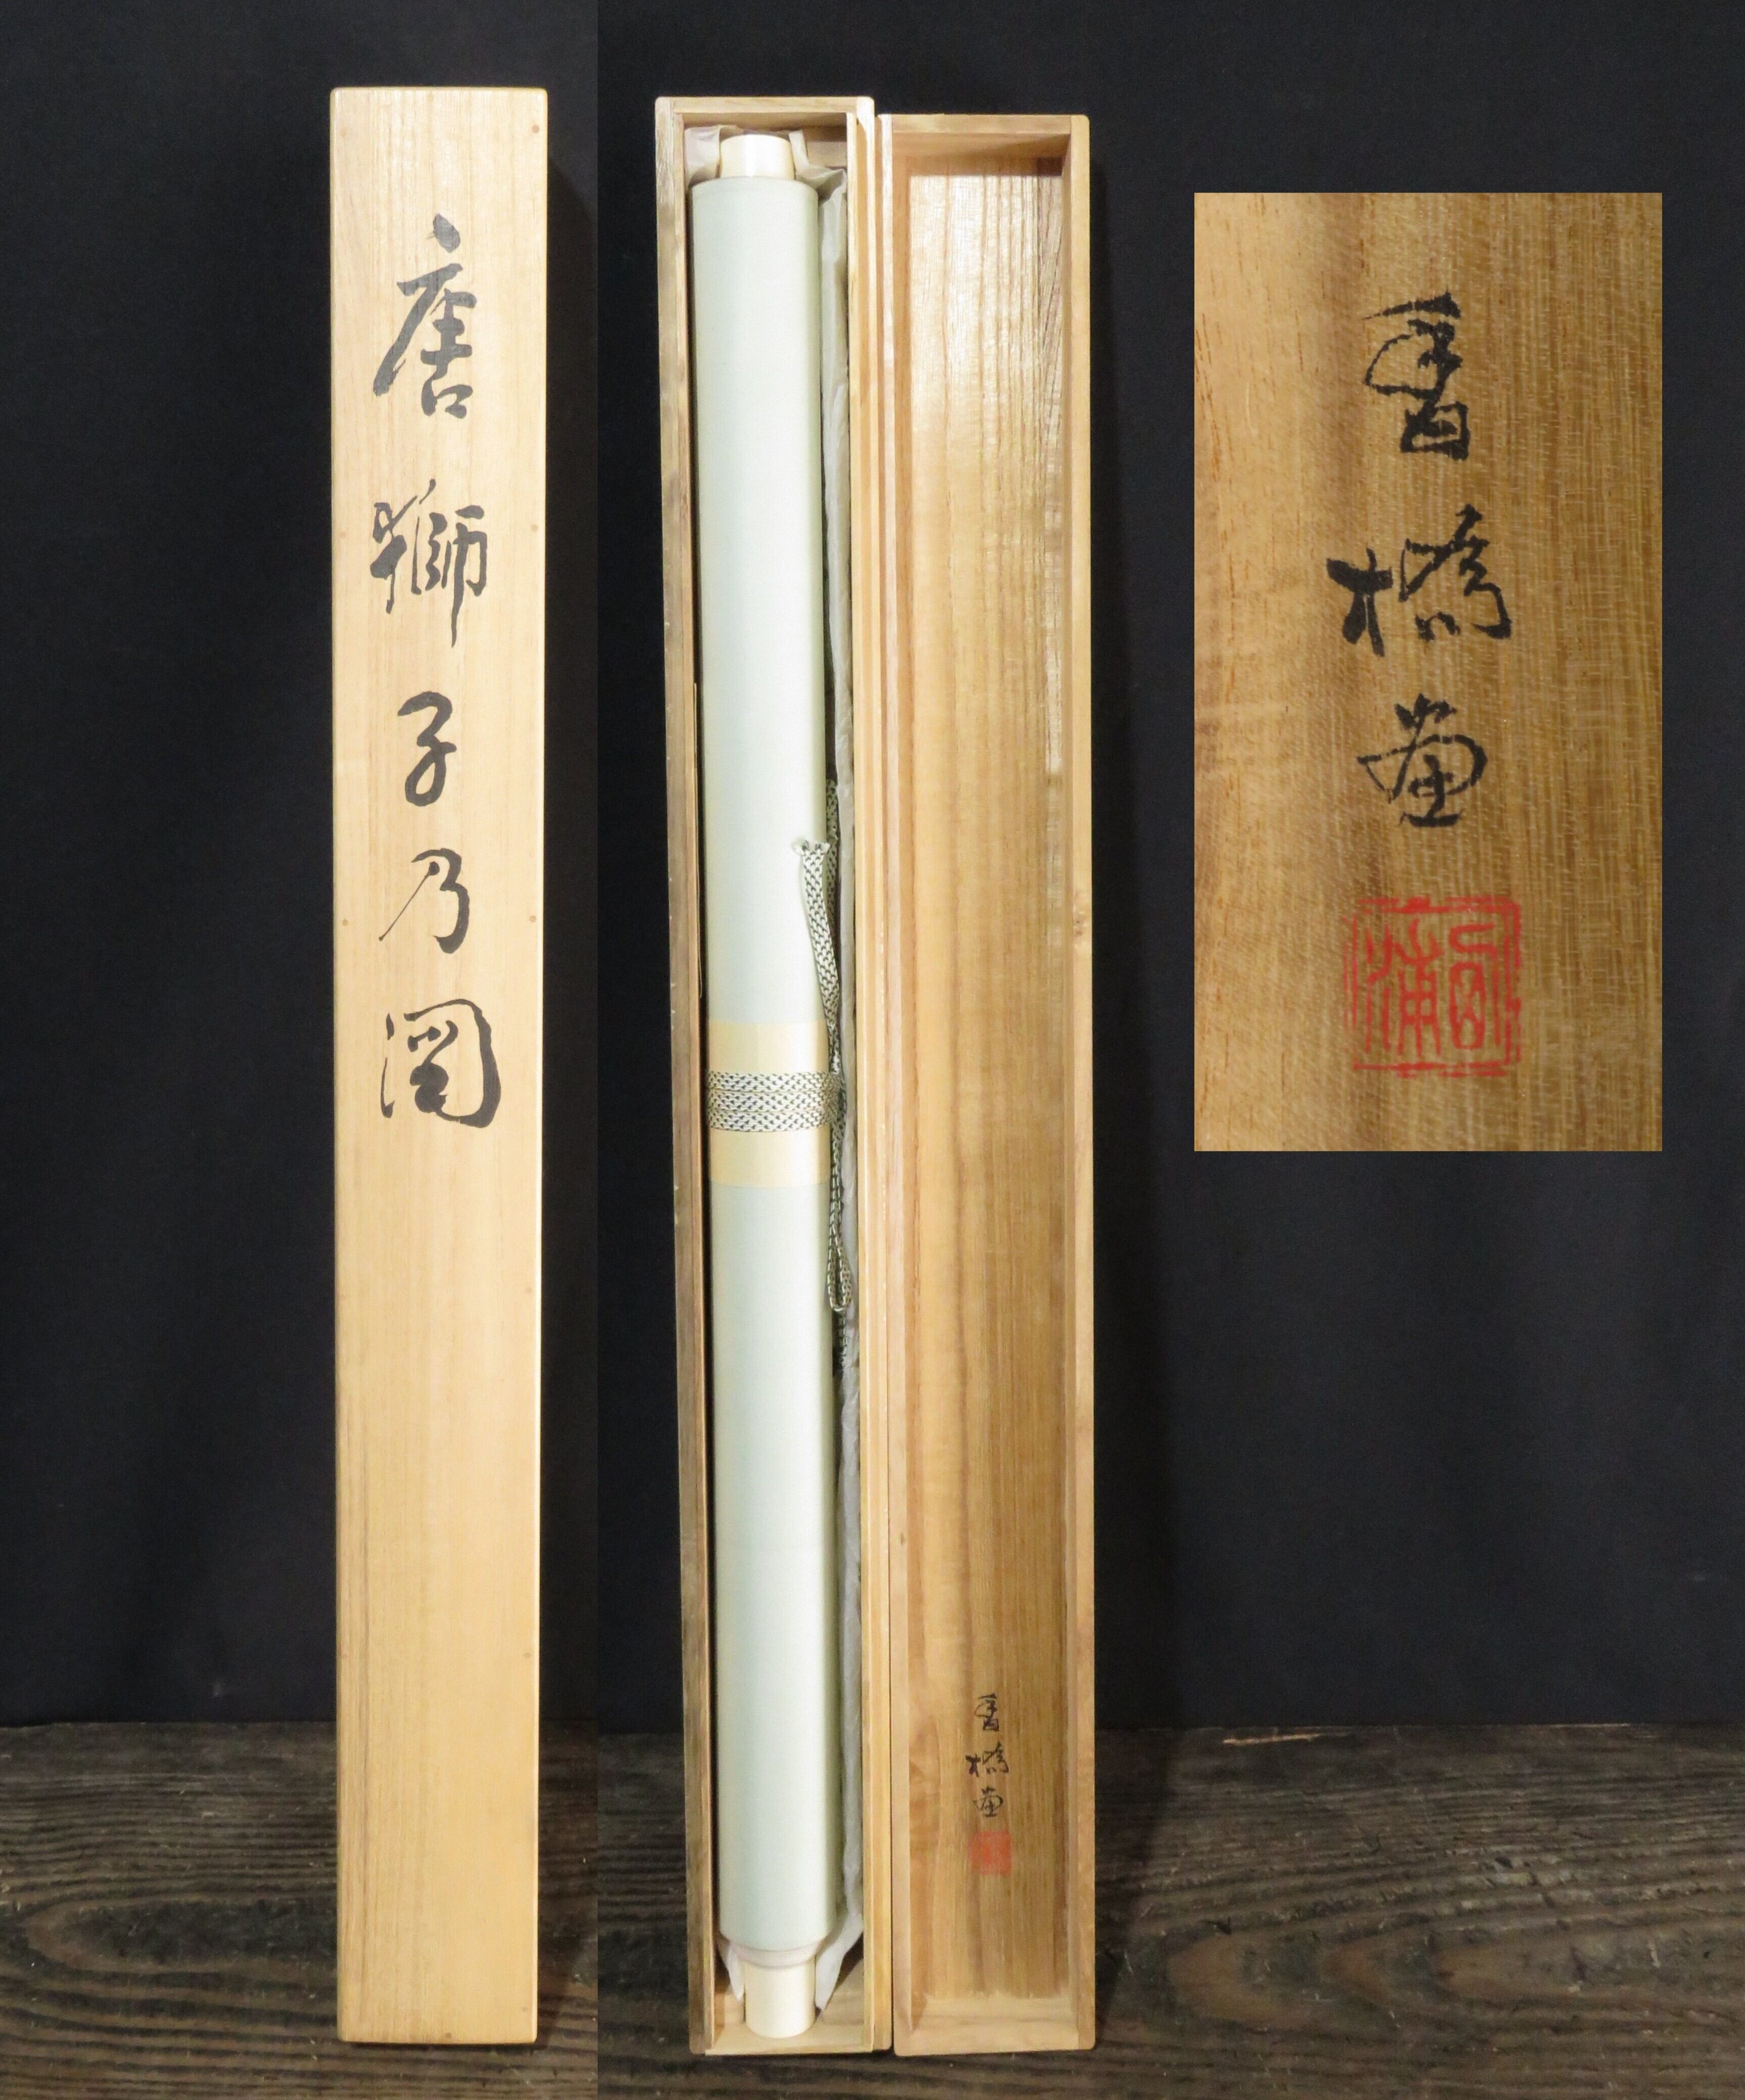 唐獅子乃図
香橋畫
香橋畫